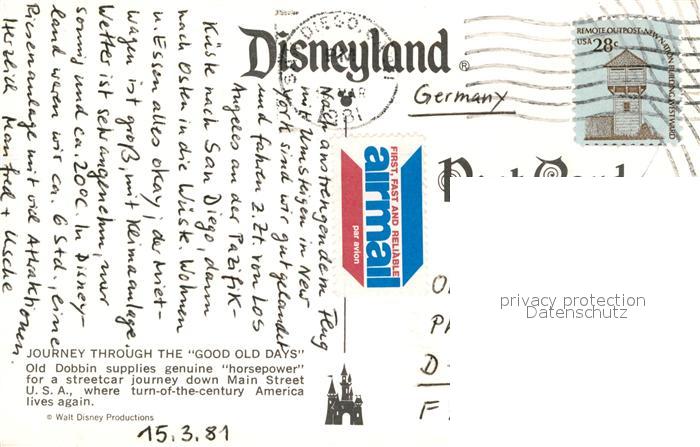 Disneyland®
SAN DIEGO
MAR
1981
REMOTE OUTPOST·NEW NATION BUILDING WESTWARD
USA 28c
Germany
Post Card
FIRST, FAST AND RELIABLE
airmail
par avion
Nach anstrengendem Flug
mit Umsteigen in New
York sind wir gut gelandet
und fahren z.Zt. von Los
Angeles an der Pazifik-
Küste nach San Diego, dann
nach Osten in die Wüste. Wohnen
u. Essen alles okay; der Miet-
wagen ist groß, mit Klimaanlage.
Wetter ist sehr angenehm, nur
sonnig und ca. 20°C. In Disney-
land waren wir ca. 6 Std., eine
Riesenanlage mit viel Attraktionen.
Herzlich Manfred + Uscha
JOURNEY THROUGH THE "GOOD OLD DAYS"
Old Dobbin supplies genuine "horsepower"
for a streetcar journey down Main Street
U. S. A., where turn-of-the-century America
lives again.
© Walt Disney Productions
15.3.81
privacy protection
Datenschutz
D-
F